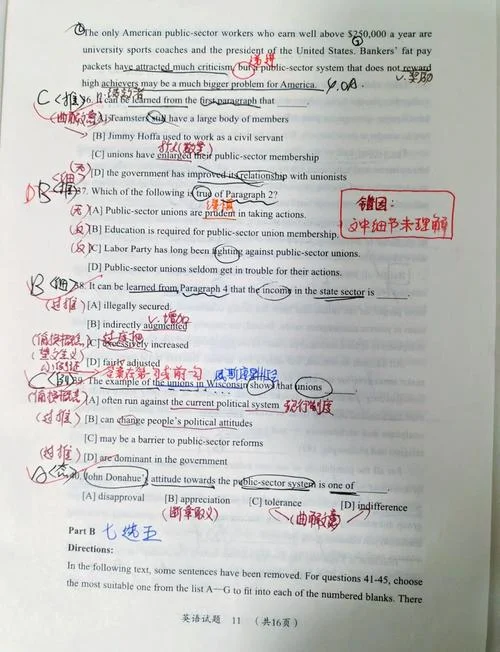 The only American public-sector workers who earn well above $250,000 a year are
university sports coaches and the president of the United States. Bankers' fat pay
packets have attracted much criticism, but a public-sector system that does not reward
high achievers may be a much bigger problem for America.
递进
v. 奖励
C <推> 36. It can be learned from the first paragraph that
(曲解文意) [A] Teamsters still have a large body of members
[B] Jimmy Hoffa used to work as a civil servant
扩大(数学)
[C] unions have enlarged their public-sector membership
(无) [D] the government has improved its relationship with unionists
D B <推> 37. Which of the following is true of Paragraph 2?
谨慎
(无) [A] Public-sector unions are prudent in taking actions.
(反) [B] Education is required for public-sector union membership.
(反) [C] Labor Party has long been fighting against public-sector unions.
[D] Public-sector unions seldom get in trouble for their actions.
错因:
文中细节未理解
B <细> 38. It can be learned from Paragraph 4 that the income in the state sector is
(过推) [A] illegally secured
v. 增加
[B] indirectly augmented
过度地
[C] excessively increased
[D] fairly adjusted
C <例> 39. The example of the unions in Wisconsin shows that unions
威斯康辛州
[A] often run against the current political system 现行制度
(过推) [B] can change people's political attitudes
[C] may be a barrier to public-sector reforms
(过推) [D] are dominant in the government
A <态> 40. John Donahue's attitude towards the public-sector system is one of
[A] disapproval [B] appreciation [C] tolerance [D] indifference
(断章取义) (曲解文意)
Part B 七选五
Directions:
In the following text, some sentences have been removed. For questions 41-45, choose
the most suitable one from the list A—G to fit into each of the numbered blanks. There
英语试题 11 (共16页)